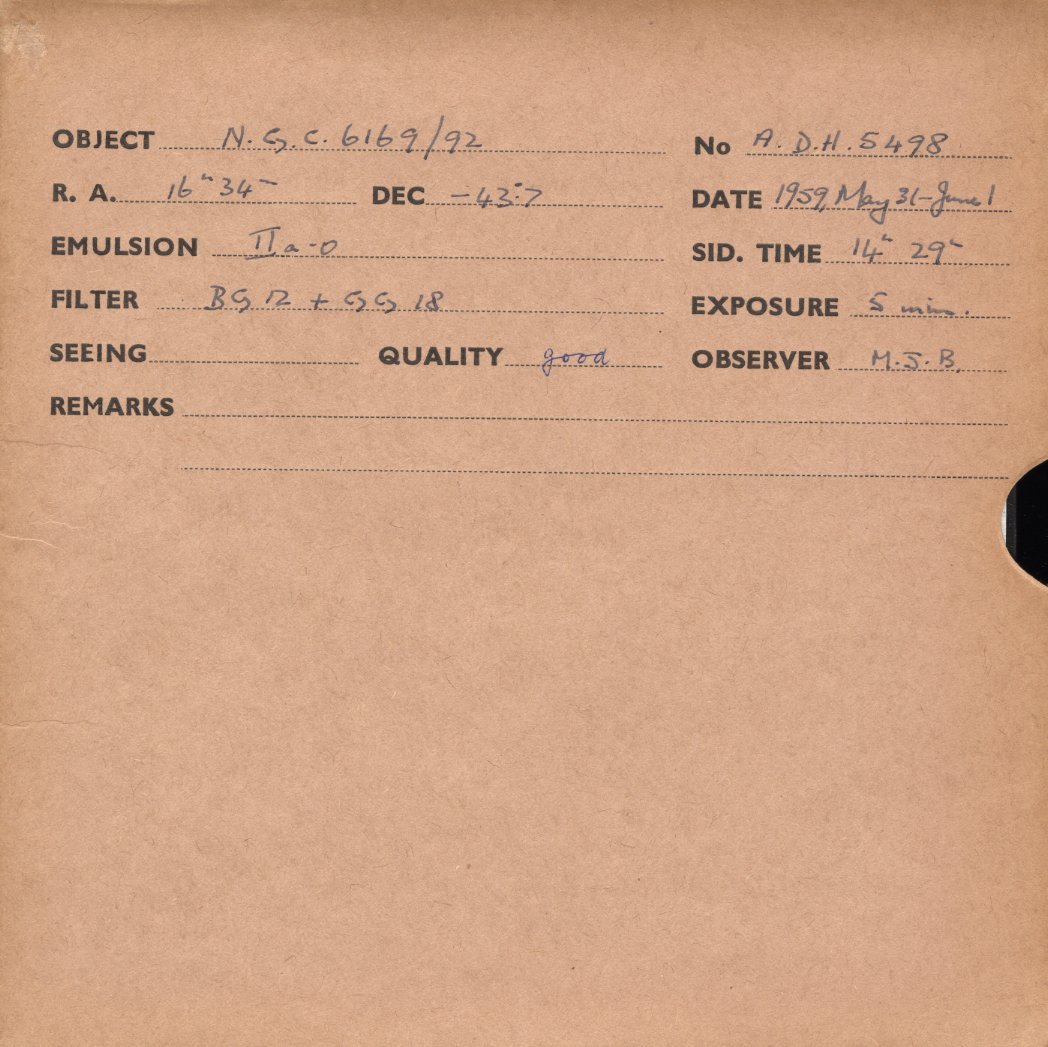 OBJECT N.G.C. 6169/92 No A.D.H. 5498
R. A. 16ʰ 34ᵐ DEC −43°.7 DATE 1959, May 31–June 1
EMULSION IIa-0 SID. TIME 14ʰ 29ᵐ
FILTER BG 12 + GG 18 EXPOSURE 5 min.
SEEING QUALITY good OBSERVER M.J.B.
REMARKS